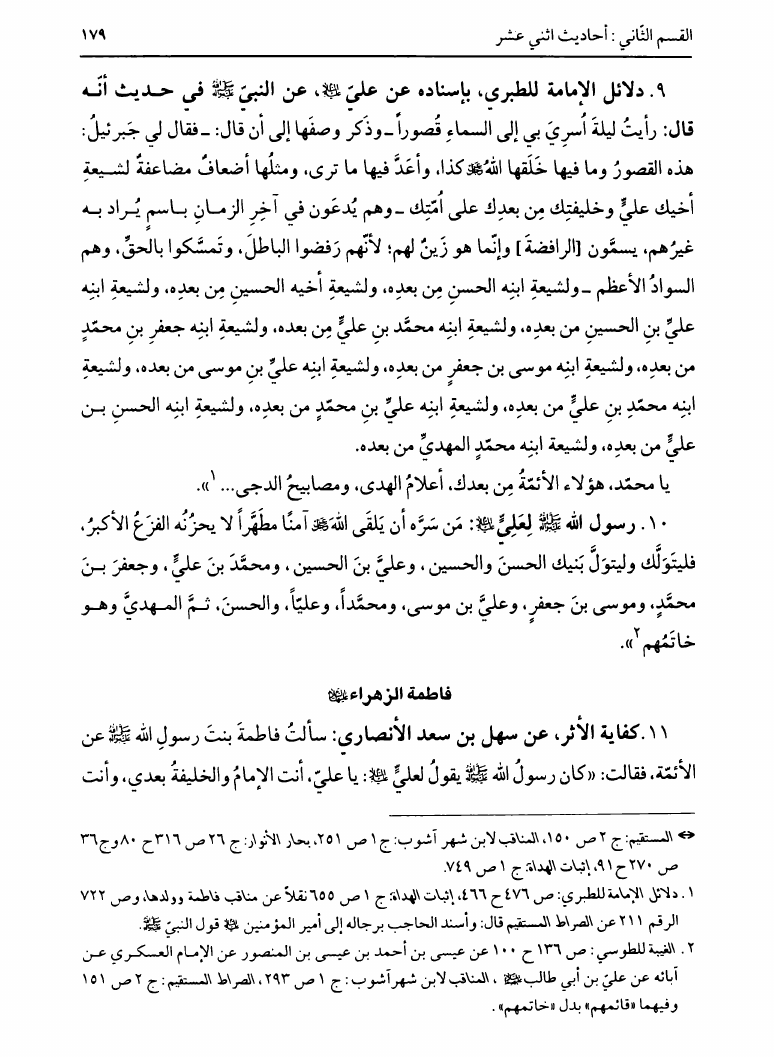 القسم الثّاني : أحاديث اثني عشر ١٧٩
٩. دلائل الإمامة للطبري، بإسناده عن عليّ ﷷ، عن النبيّ ﷺ في حـديث أنّـه
قال: رأيتُ ليلةَ أُسرِيَ بي إلى السماءِ قُصوراً ـ وذَكر وصفَها إلى أن قال: ـ فقال لي جَبرئيلُ:
هذه القصورُ وما فيها خَلَقها اللهُ ﷻ كذا، وأعَدَّ فيها ما ترى، ومثلُها أضعافٌ مضاعفةٌ لشـيعةِ
أخيك عليٍّ وخليفتِك مِن بعدِك على أُمّتِك ـ وهم يُدعَون في آخِرِ الزمـانِ بـاسمٍ يُـراد بـه
غيرُهم، يسمَّون [الرافضةَ] وإنّما هو زَينٌ لهم؛ لأنّهم رَفضوا الباطلَ، وتَمسَّكوا بالحقِّ، وهم
السوادُ الأعظم ـ ولشيعةِ ابنِه الحسنِ مِن بعدِه، ولشيعةِ أخيه الحسين مِن بعدِه، ولشيعةِ ابنِه
عليِّ بنِ الحسين من بعدِه، ولشيعةِ ابنه محمَّد بنِ عليٍّ مِن بعده، ولشيعةِ ابنه جعفرِ بنِ محمّدٍ
من بعدِه، ولشيعةِ ابنِه موسى بن جعفرٍ من بعدِه، ولشيعةِ ابنِه عليِّ بنِ موسى من بعده، ولشيعةِ
ابنِه محمّدِ بنِ عليٍّ من بعدِه، ولشيعةِ ابنِه عليِّ بنِ محمّدٍ من بعدِه، ولشيعةِ ابنه الحسنِ بـن
عليٍّ من بعدِه، ولشيعة ابنِه محمّدٍ المهديِّ من بعده.
يا محمّد، هؤلاء الأئمّةُ مِن بعدك، أعلامُ الهدى، ومصابيحُ الدجى... ١».
١٠. رسول الله ﷺ لِعَلِيٍّ ﷷ: مَن سَرَّه أن يَلقَى اللهَ ﷻ آمنًا مطَهَّراً لا يحزُنُه الفزَعُ الأكبرُ،
فليتَوَلَّك وليتولَّ بَنيك الحسنَ والحسين، وعليَّ بنَ الحسين، ومحمَّدَ بنَ عليٍّ، وجعفرَ بـنَ
محمَّدٍ، وموسى بنَ جعفرٍ، وعليَّ بن موسى، ومحمَّداً، وعليّاً، والحسنَ، ثـمَّ المـهديَّ وهـو
خاتَمُهم ٢».
فاطمة الزهراء ﷷ
١١. كفاية الأثر، عن سهل بن سعد الأنصاري: سألتُ فاطمةَ بنتَ رسولِ الله ﷺ عن
الأئمّة، فقالت: «كان رسولُ الله ﷺ يقولُ لعليٍّ ﷷ: يا عليّ، أنت الإمامُ والخليفةُ بعدي، وأنت
⇔ المستقيم: ج ٢ ص ١٥٠، المناقب لابن شهر آشوب: ج ١ ص ٢٥١، بحار الأنوار: ج ٢٦ ص ٣١٦ ح ٨٠ و ج ٣٦
ص ٢٧٠ ح ٩١، إثبات الهداة: ج ١ ص ٧٤٩.
١. دلائل الإمامة للطبري: ص ٤٧٦ ح ٤٦٦، إثبات الهداة: ج ١ ص ٦٥٥ نقلاً عن مناقب فاطمة وولدها، و ص ٧٢٢
الرقم ٢١١ عن الصراط المستقيم قال: وأسند الحاجب برجاله إلى أمير المؤمنين ﷷ قول النبيّ ﷺ.
٢. الغيبة للطوسي: ص ١٣٦ ح ١٠٠ عن عيسى بن أحمد بن عيسى بن المنصور عن الإمام العسكري عـن
آبائه عن عليّ بن أبي طالب ﷷ، المناقب لابن شهرآشوب: ج ١ ص ٢٩٣، الصراط المستقيم: ج ٢ ص ١٥١
وفيهما «قائمهم» بدل «خاتمهم».